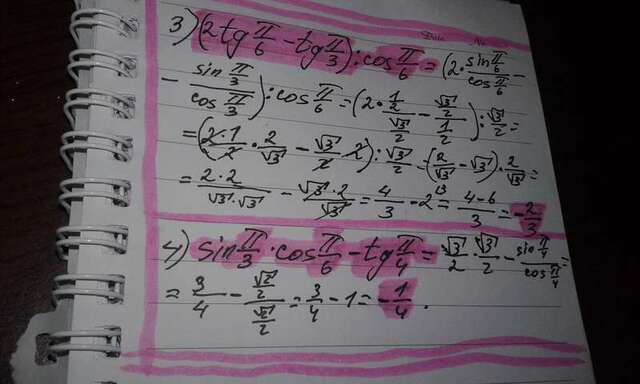 3) (2tg π/6 - tg π/3) : cos π/6 = (2 · sin π/6 / cos π/6 -
- sin π/3 / cos π/3) : cos π/6 = (2 · 1/2 / √3/2 - √3/2 / 1/2) : √3/2 =
= (2·1/2 · 2/√3 - √3/2 · 2) : √3/2 = (2/√3 - √3) · 2/√3 =
= 2·2/√3·√3 - √3·2/√3 = 4/3 - 2 = 4-6/3 = -2/3
4) sin π/3 · cos π/6 - tg π/4 = √3/2 · √3/2 - sin π/4 / cos π/4 =
= 3/4 - √2/2 / √2/2 = 3/4 - 1 = -1/4.